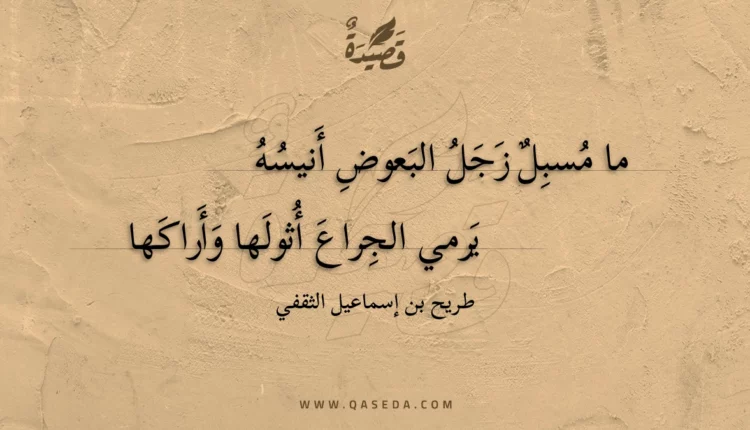 قَصِيدَةٌ
ما مُسبِلٌ زَجَلُ البَعوضِ أَنيسُهُ
يَرمي الجِراعَ أُثولَها وَأَراكَها
طريح بن إسماعيل الثقفي
WWW.QASEDA.COM